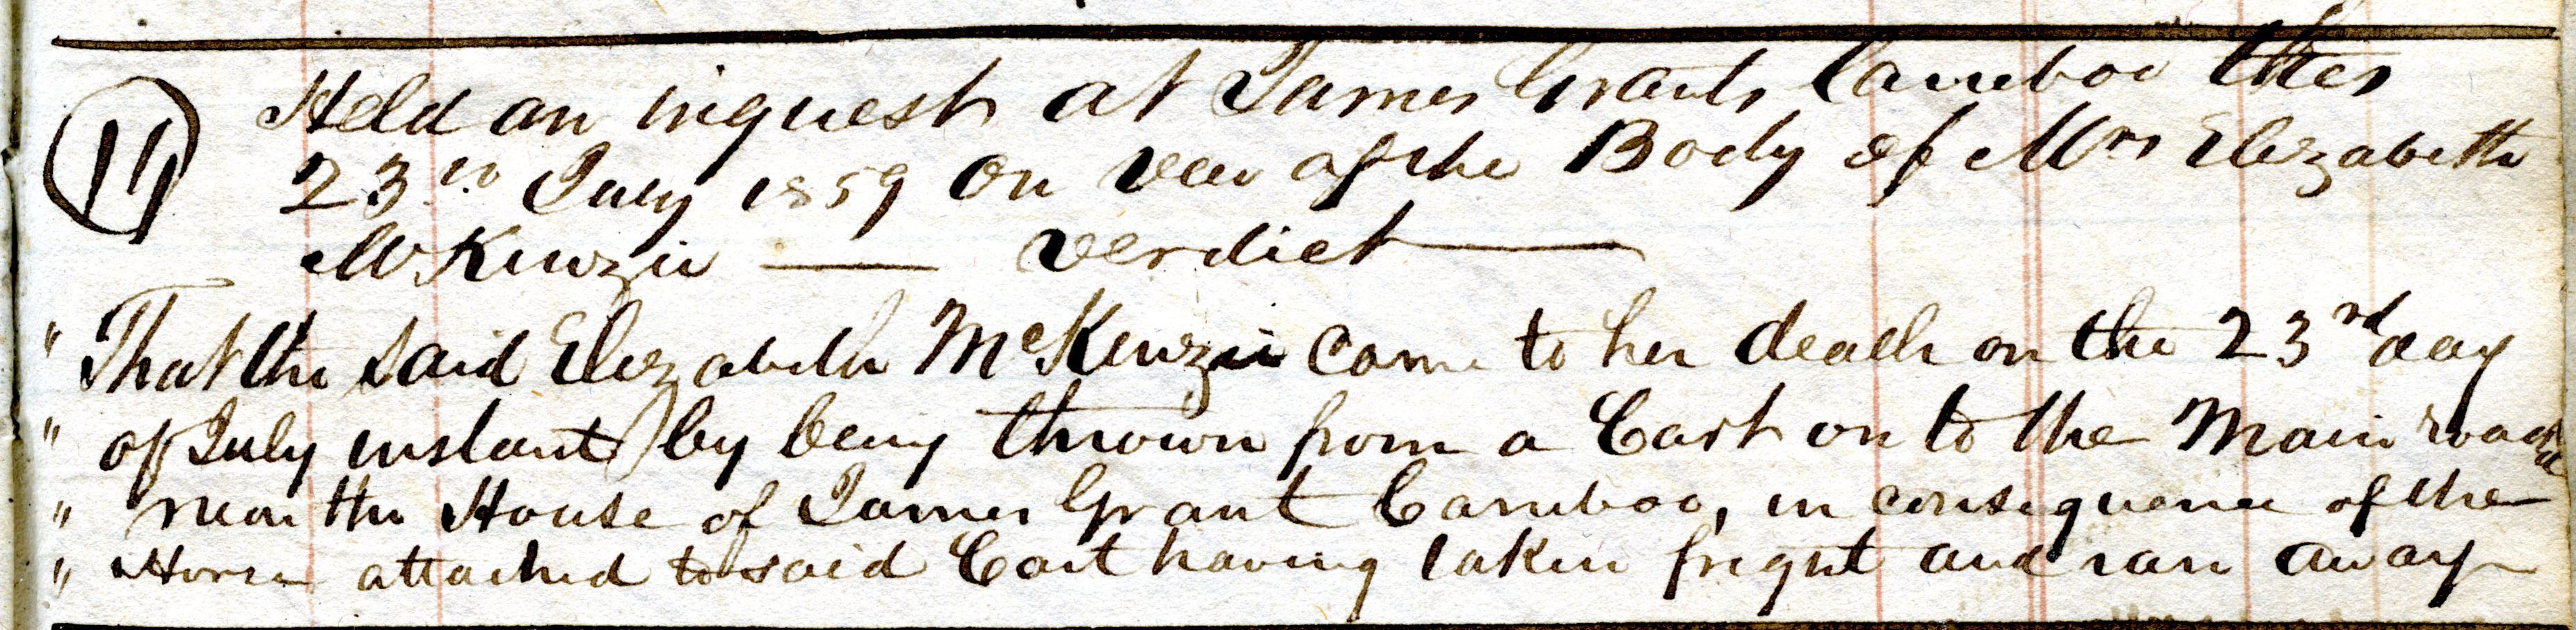 11 Held an inquest at James Grants Cariboo this
23rd July 1859 on veu of the Body of Mrs Elizabeth
McKenzie — Verdict —
" That the said Elizabeth McKenzie came to her death on the 23rd day
" of July instant by being thrown from a Cart on to the Main road
" near the House of James Grant Cariboo, in consequence of the
" Horse attached to said Cart having taken fright and ran away